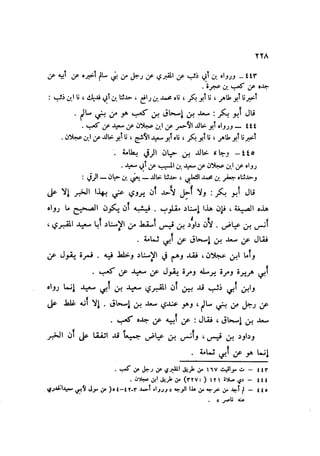 ٢٢٨
٤٤٣ ـ ورواه بن أبي ذئب عن المقبري عن رجل من بني سالم أخبره عن أبيه عن
جده عن كعب بن عجرة .
أخبرنا أبو طاهر ، نا أبو بكر ، ناه محمد بن رافع ، حدثنا بن أبي فديك ، نا بن أبي ذئب :
قال أبو بكر : سعد بن إسحاق بن كعب هو من بني سالم .
٤٤٤ ـ ورواه أبو خالد الأحمر عن ابن عجلان عن سعيد عن كعب .
أخبرنا أبو طاهر ، نا أبو بكر ، ناه أبو سعيد الأشج ، نا أبو خالد عن ابن عجلان .
٤٤٥ ـ وجاء خالد بن حيان الرقي بطامة .
رواه عن ابن عجلان عن سعيد بن المسيب عن أبي سعيد .
وحدثناه جعفر بن محمد الثعلبي ، حدثنا خالد ـ يعني بن حيان ـ الرقي :
قال أبو بكر : ولا أحل لأحد أن يروي عني بهذا الخبر إلا على
هذه الصيغة ، فإن هذا إسناد مقلوب . فيشبه أن يكون الصحيح ما رواه
أنس بن عياض . لأن داود بن قيس أسقط من الإسناد أبا سعيد المقبري ،
فقال عن سعد بن إسحاق عن أبي ثمامة .
وأما ابن عجلان ، فقد وهم في الإسناد وخلط فيه . فمرة يقول عن
أبي هريرة ومرة يرسله ومرة يقول عن سعيد عن كعب .
وابن أبي ذئب قد بين أن المقبري سعيد بن أبي سعيد إنما رواه
عن رجل من بني سالم ، وهو عندي سعد بن إسحاق . إلا أنه غلط على
سعد بن إسحاق ، فقال : عن أبيه عن جده كعب .
وداود بن قيس ، وأنس بن عياض جميعاً قد اتفقا على أن الخبر
إنما هو عن أبي ثمامة .
٤٤٣ ـ ت مواقيت ١٦٧ من طريق المقبري عن رجل عن كعب .
٤٤٤ ـ دي صلاة ١٢١ ( :٣٢٧) من طريق ابن عجلان .
٤٤٥ ـ لم أجد من خرجه من هذا الوجه ؛ ورواه أحمد ٣ـ٤٢